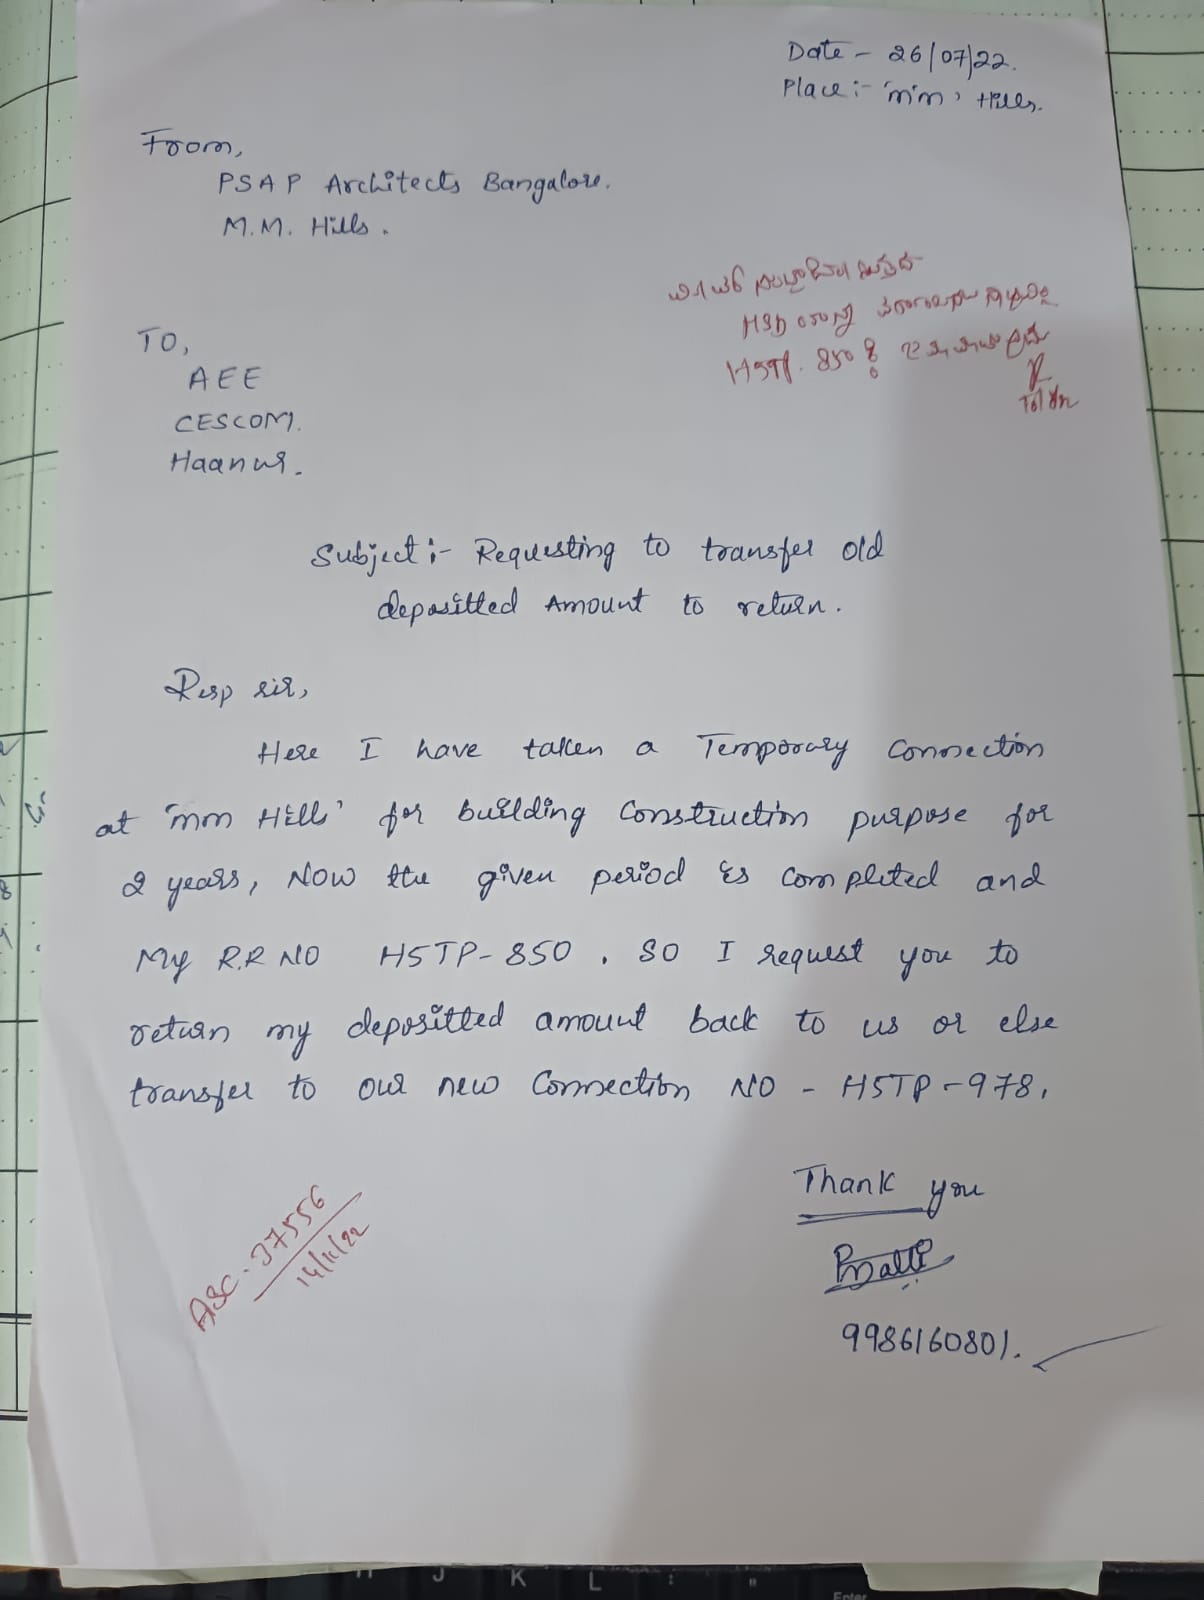 Date - 26/07/22.
Place :- 'mm' Hills.
From,
PSAP Architects Bangalore.
M.M. Hills.
TO,
AEE
CESCOM.
Haanur.
HSTP. 850 ಕ್ಕೆ
Subject :- Requesting to transfer old
depositted Amount to return.
Resp sir,
Here I have taken a Temporary Connection
at 'mm Hills' for building Construction purpose for
2 years, Now the given period is completed and
My R.R NO HSTP-850 . SO I request you to
return my depositted amount back to us or else
transfer to our new Connection NO - HSTP-978.
Thank you
9986160801.
ASC. 37556
14/11/22